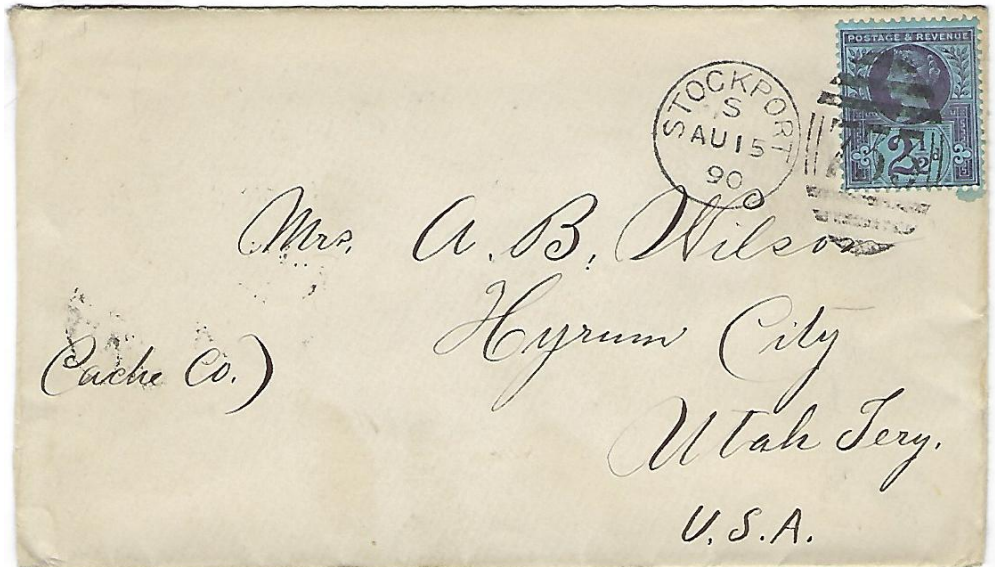 POSTAGE & REVENUE
STOCKPORT
S
AU 15
90
2½d
Mrs. A. B. Wilson
Hyrum City
(Cache Co.)
Utah Tery.
U.S.A.